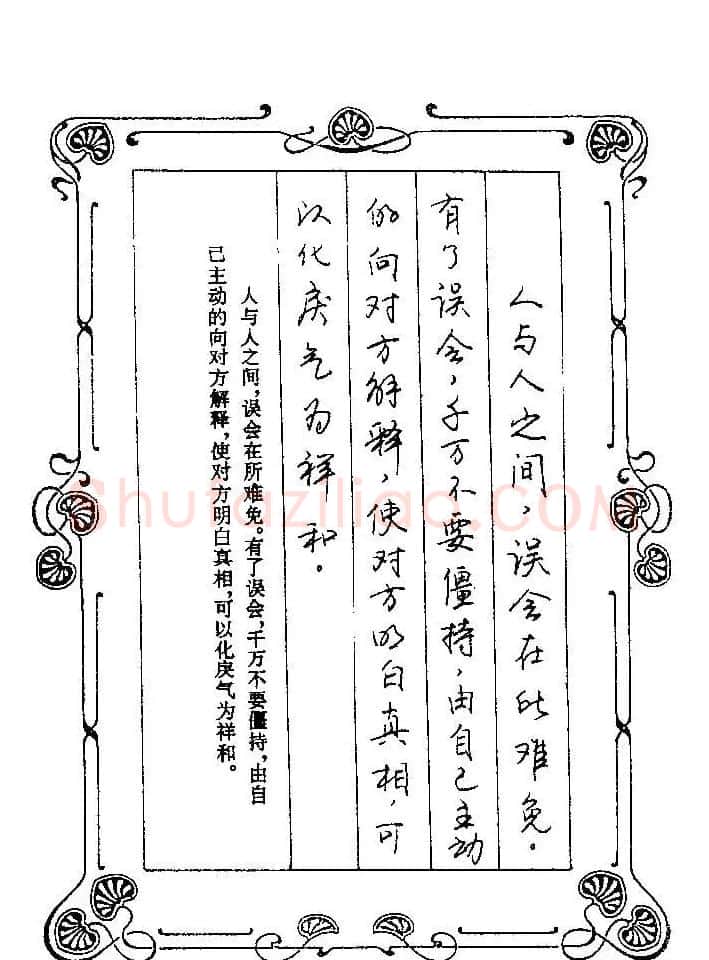 人与人之间，误会在所难免。
有了误会，千万不要僵持，由自己主动
的向对方解释，使对方明白真相，可
以化戾气为祥和。
人与人之间，误会在所难免。有了误会，千万不要僵持，由自
己主动的向对方解释，使对方明白真相，可以化戾气为祥和。
Shufaziliao.COM